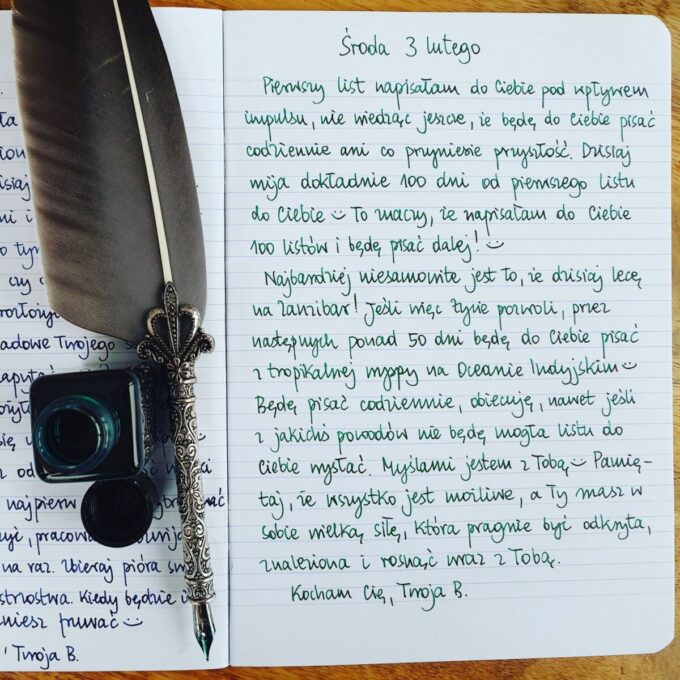 ta
ion
isiaj
ni i
o tym
czy
adowe Twojego s
zapytać
się u
najpierw
, pracowa
na raz. Zbieraj pióra sw
Kiedy będzie
niesz fruwać
Twoja B.
Środa 3 lutego
Pierwszy list napisałam do Ciebie pod wpływem
impulsu, nie wiedząc jeszcze, że będę do Ciebie pisać
codziennie ani co przyniesie przyszłość. Dzisiaj
mija dokładnie 100 dni od pierwszego listu
do Ciebie :) To znaczy, że napisałam do Ciebie
100 listów i będę pisać dalej! :)
Najbardziej niesamowite jest to, że dzisiaj lecę
na Zanzibar! Jeśli więc życie pozwoli, przez
następnych ponad 50 dni będę do Ciebie pisać
z tropikalnej wyspy na Oceanie Indyjskim :)
Będę pisać codziennie, obiecuję, nawet jeśli
z jakichś powodów nie będę mogła listu do
Ciebie wysłać. Myślami jestem z Tobą :) Pamię-
taj, że wszystko jest możliwe, a Ty masz w
sobie wielką siłę, która pragnie być odkryta,
znaleziona i rosnąć wraz z Tobą.
Kocham Cię, Twoja B.